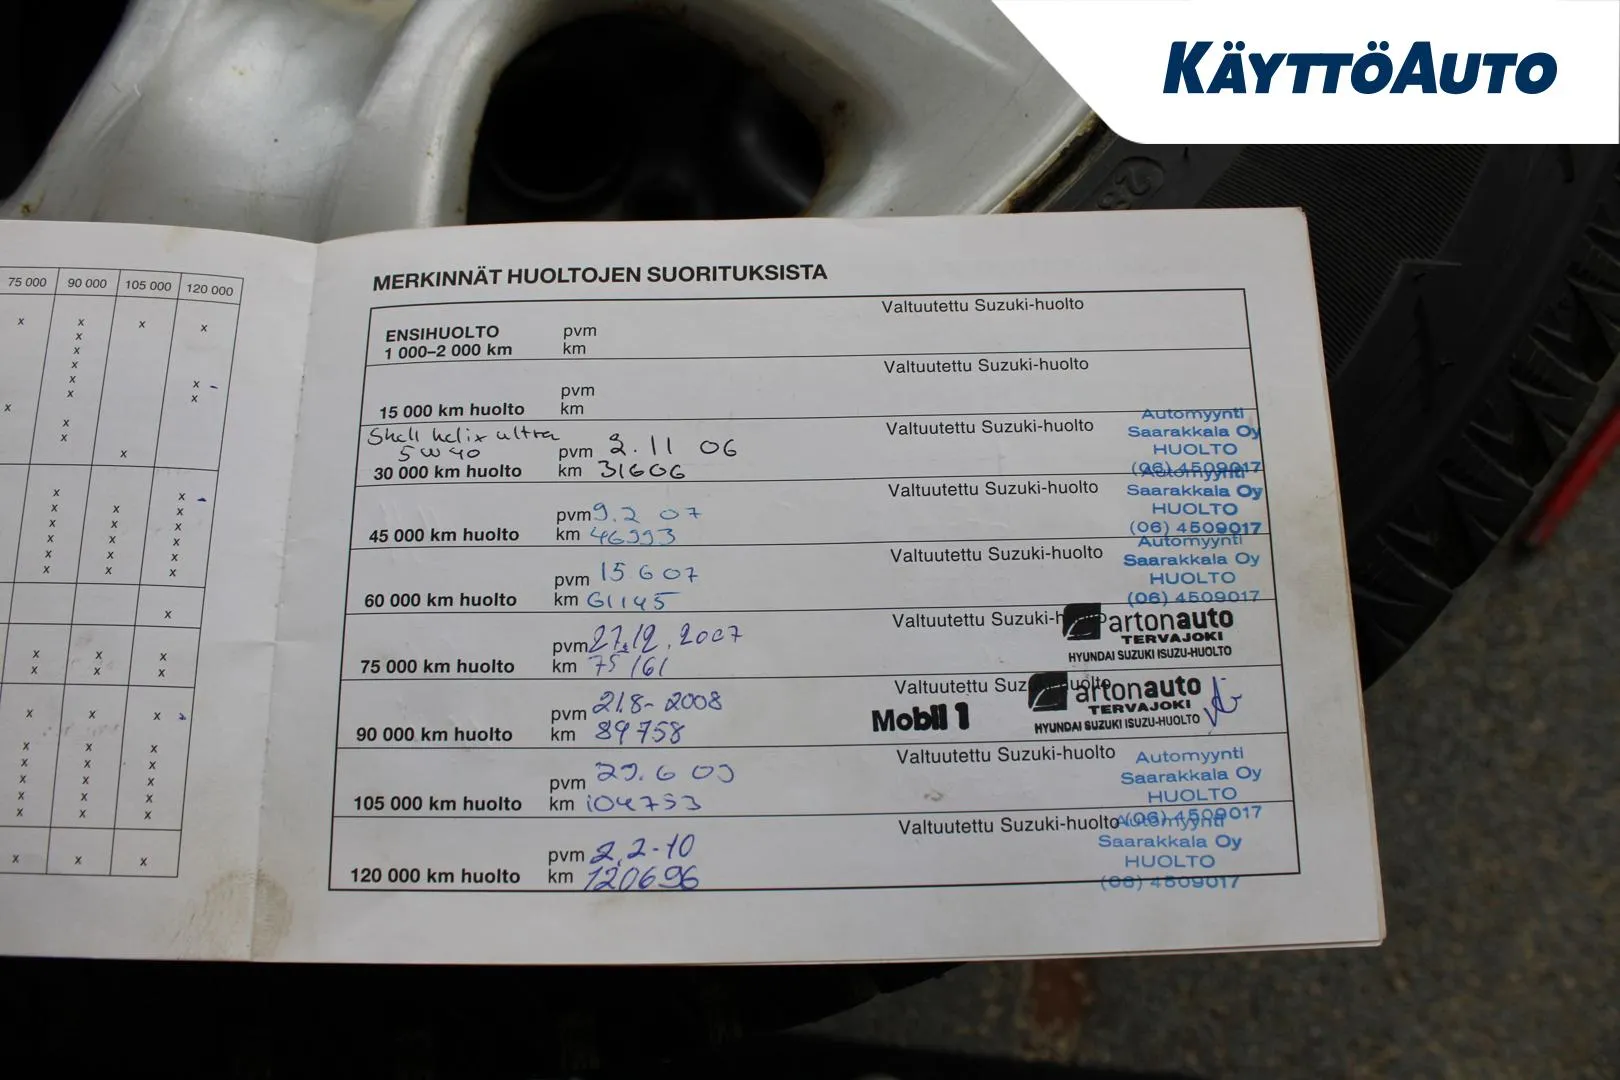 KÄYTTÖAUTO
75 000 90 000 105 000 120 000
MERKINNÄT HUOLTOJEN SUORITUKSISTA
ENSIHUOLTO pvm Valtuutettu Suzuki-huolto
1 000–2 000 km km
pvm Valtuutettu Suzuki-huolto
15 000 km huolto km
Shell helix ultra
5W40 pvm 2.11 06 Valtuutettu Suzuki-huolto
30 000 km huolto km 31606
Automyynti
Saarakkala Oy
HUOLTO
(06) 4509017
pvm 9.2 07 Valtuutettu Suzuki-huolto
45 000 km huolto km 46993
Automyynti
Saarakkala Oy
HUOLTO
(06) 4509017
pvm 15 6 07 Valtuutettu Suzuki-huolto
60 000 km huolto km 61145
Automyynti
Saarakkala Oy
HUOLTO
(06) 4509017
pvm 27.12.2007 Valtuutettu Suzuki-huolto
75 000 km huolto km 75161
artonauto
TERVAJOKI
HYUNDAI SUZUKI ISUZU-HUOLTO
pvm 21.8-2008 Valtuutettu Suzuki-huolto
90 000 km huolto km 89758
Mobil 1
artonauto
TERVAJOKI
HYUNDAI SUZUKI ISUZU-HUOLTO
pvm 29.6 09 Valtuutettu Suzuki-huolto
105 000 km huolto km 104753
Automyynti
Saarakkala Oy
HUOLTO
(06) 4509017
pvm 2.2-10 Valtuutettu Suzuki-huolto
120 000 km huolto km 120696
Automyynti
Saarakkala Oy
HUOLTO
(06) 4509017